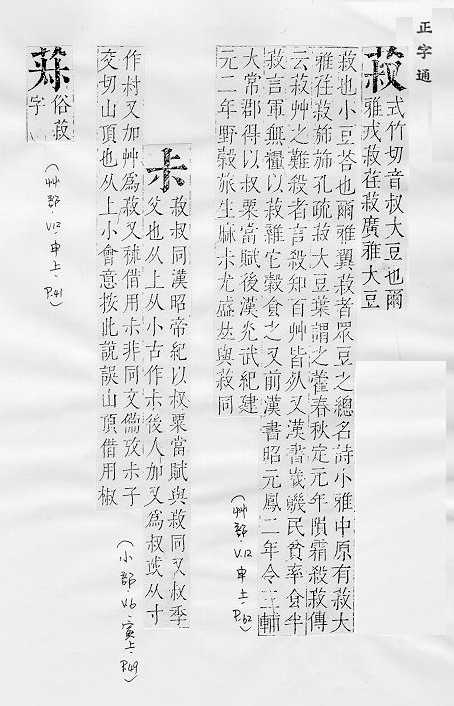 正字通
菽 式竹切音叔大豆也爾
雅戎菽荏菽廣雅大豆
菽也小豆荅也爾雅翼菽者眾豆之總名詩小雅中原有菽大
雅荏菽斾斾孔疏菽大豆葉謂之藿春秋定元年隕霜殺菽傳
云菽艸之難殺者言殺知百艸皆死又漢書歲饑民貧率食半
菽言軍無糧以菽雜它穀食之又前漢書昭元鳳二年令三輔
大常郡得以叔粟當賦後漢光武紀建
元二年野穀旅生麻尗尤盛𠀤與菽同
(艸部·V.12 申上·P.62)
尗 菽叔同漢昭帝紀以叔粟當賦與菽同又叔季
父也从上从小古作尗後人加又為叔或从寸
作村又加艸為菽又椒借用尗非同文備攷尗子
交切山頂也从上小會意按此說誤山頂借用椒
(小部·V.6·寅上·P.49)
俗菽
字
(艸部·V.12 申上·P.41)